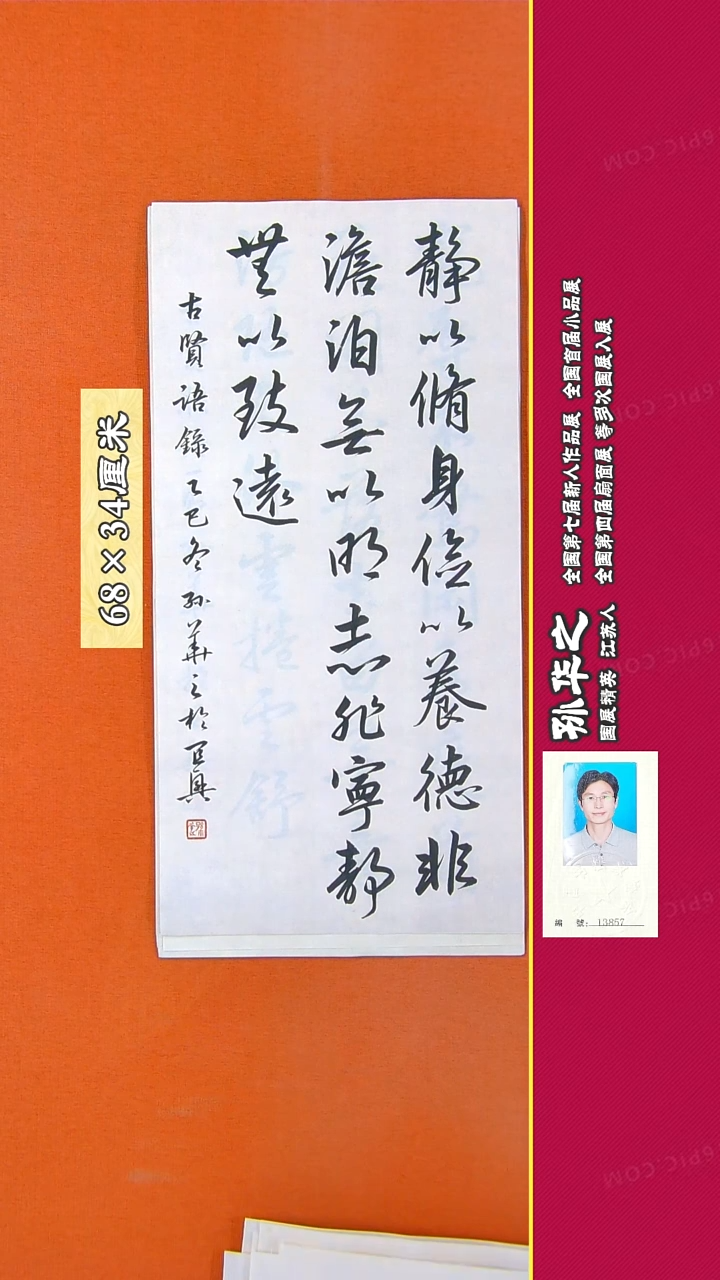 靜以脩身儉以養德非
澹泊無以明志非寧靜
無以致遠
古賢語錄乙巳冬孙華之於
68×34厘米
孙华之
国展精英 江苏人
全国第七届新人作品展 全国首届小品展
全国第四届扇面展 等多次国展入展
編 號: 13857
6PIC.COM